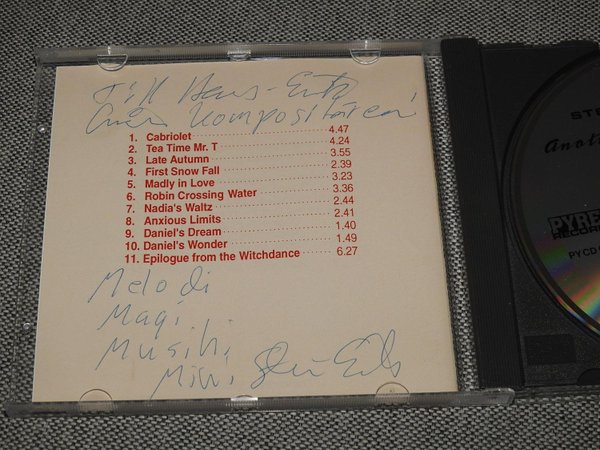 Till Hans-Erik
kompositören!
1. Cabriolet 4.47
2. Tea Time Mr. T 4.24
3. Late Autumn 3.55
4. First Snow Fall 2.39
5. Madly in Love 3.23
6. Robin Crossing Water 3.36
7. Nadia's Waltz 2.44
8. Anxious Limits 2.41
9. Daniel's Dream 1.40
10. Daniel's Wonder 1.49
11. Epilogue from the Witchdance 6.27
Melodi
Magi
Musik,
STE
Anoth
PYRE
RECOR
PYCD